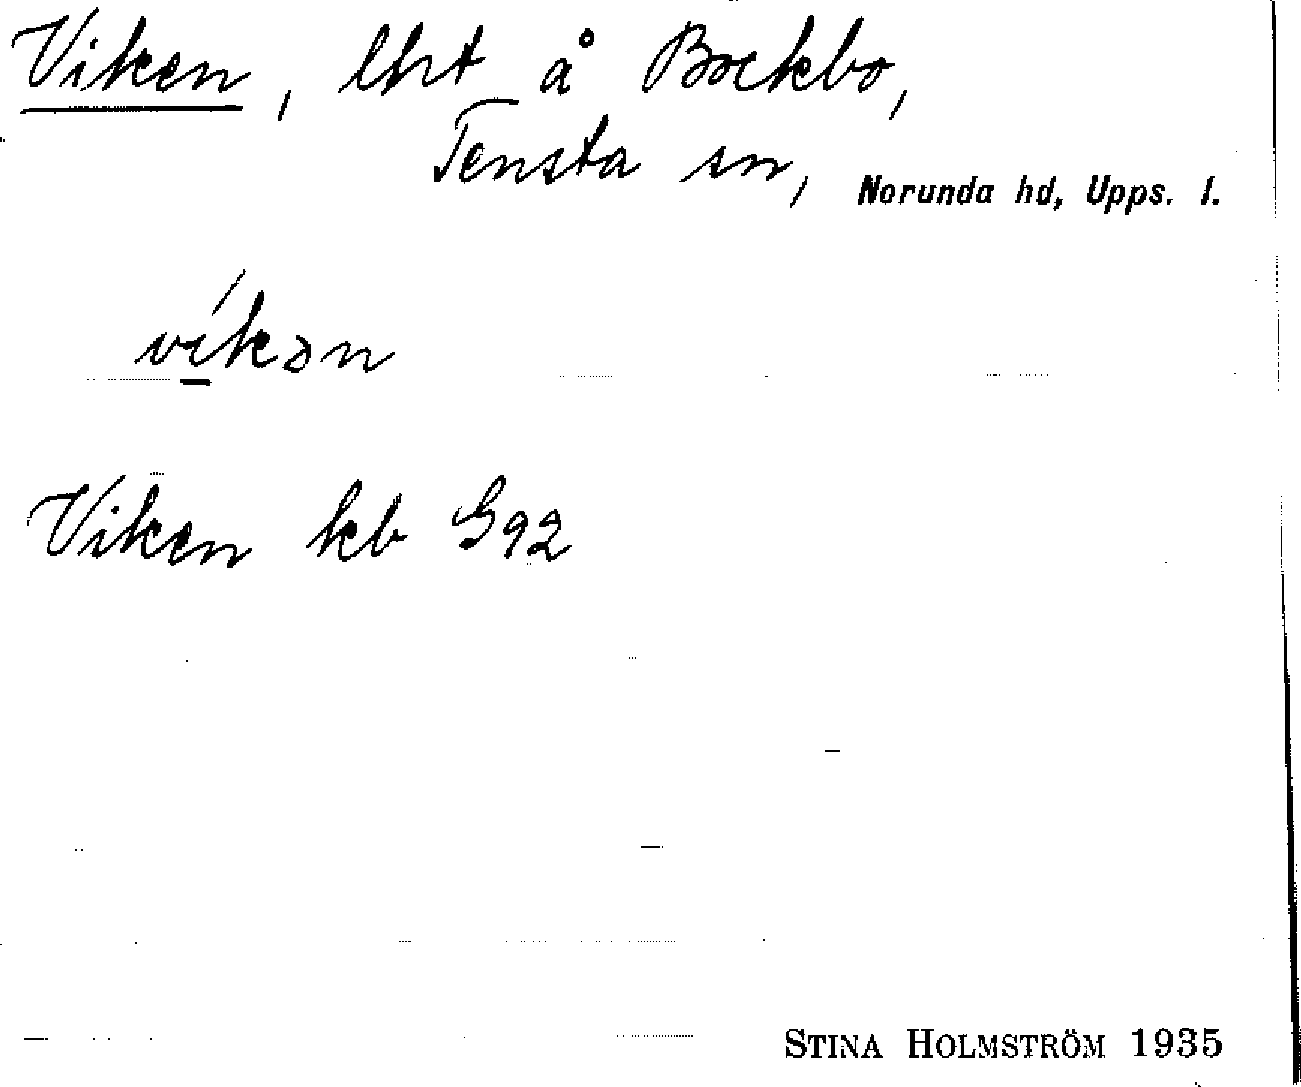 Viken, lht å Bockbo,
Tensta sn, Norunda hd, Upps. l.
ví̱kən
Viken kb G92
STINA HOLMSTRÖM 1935